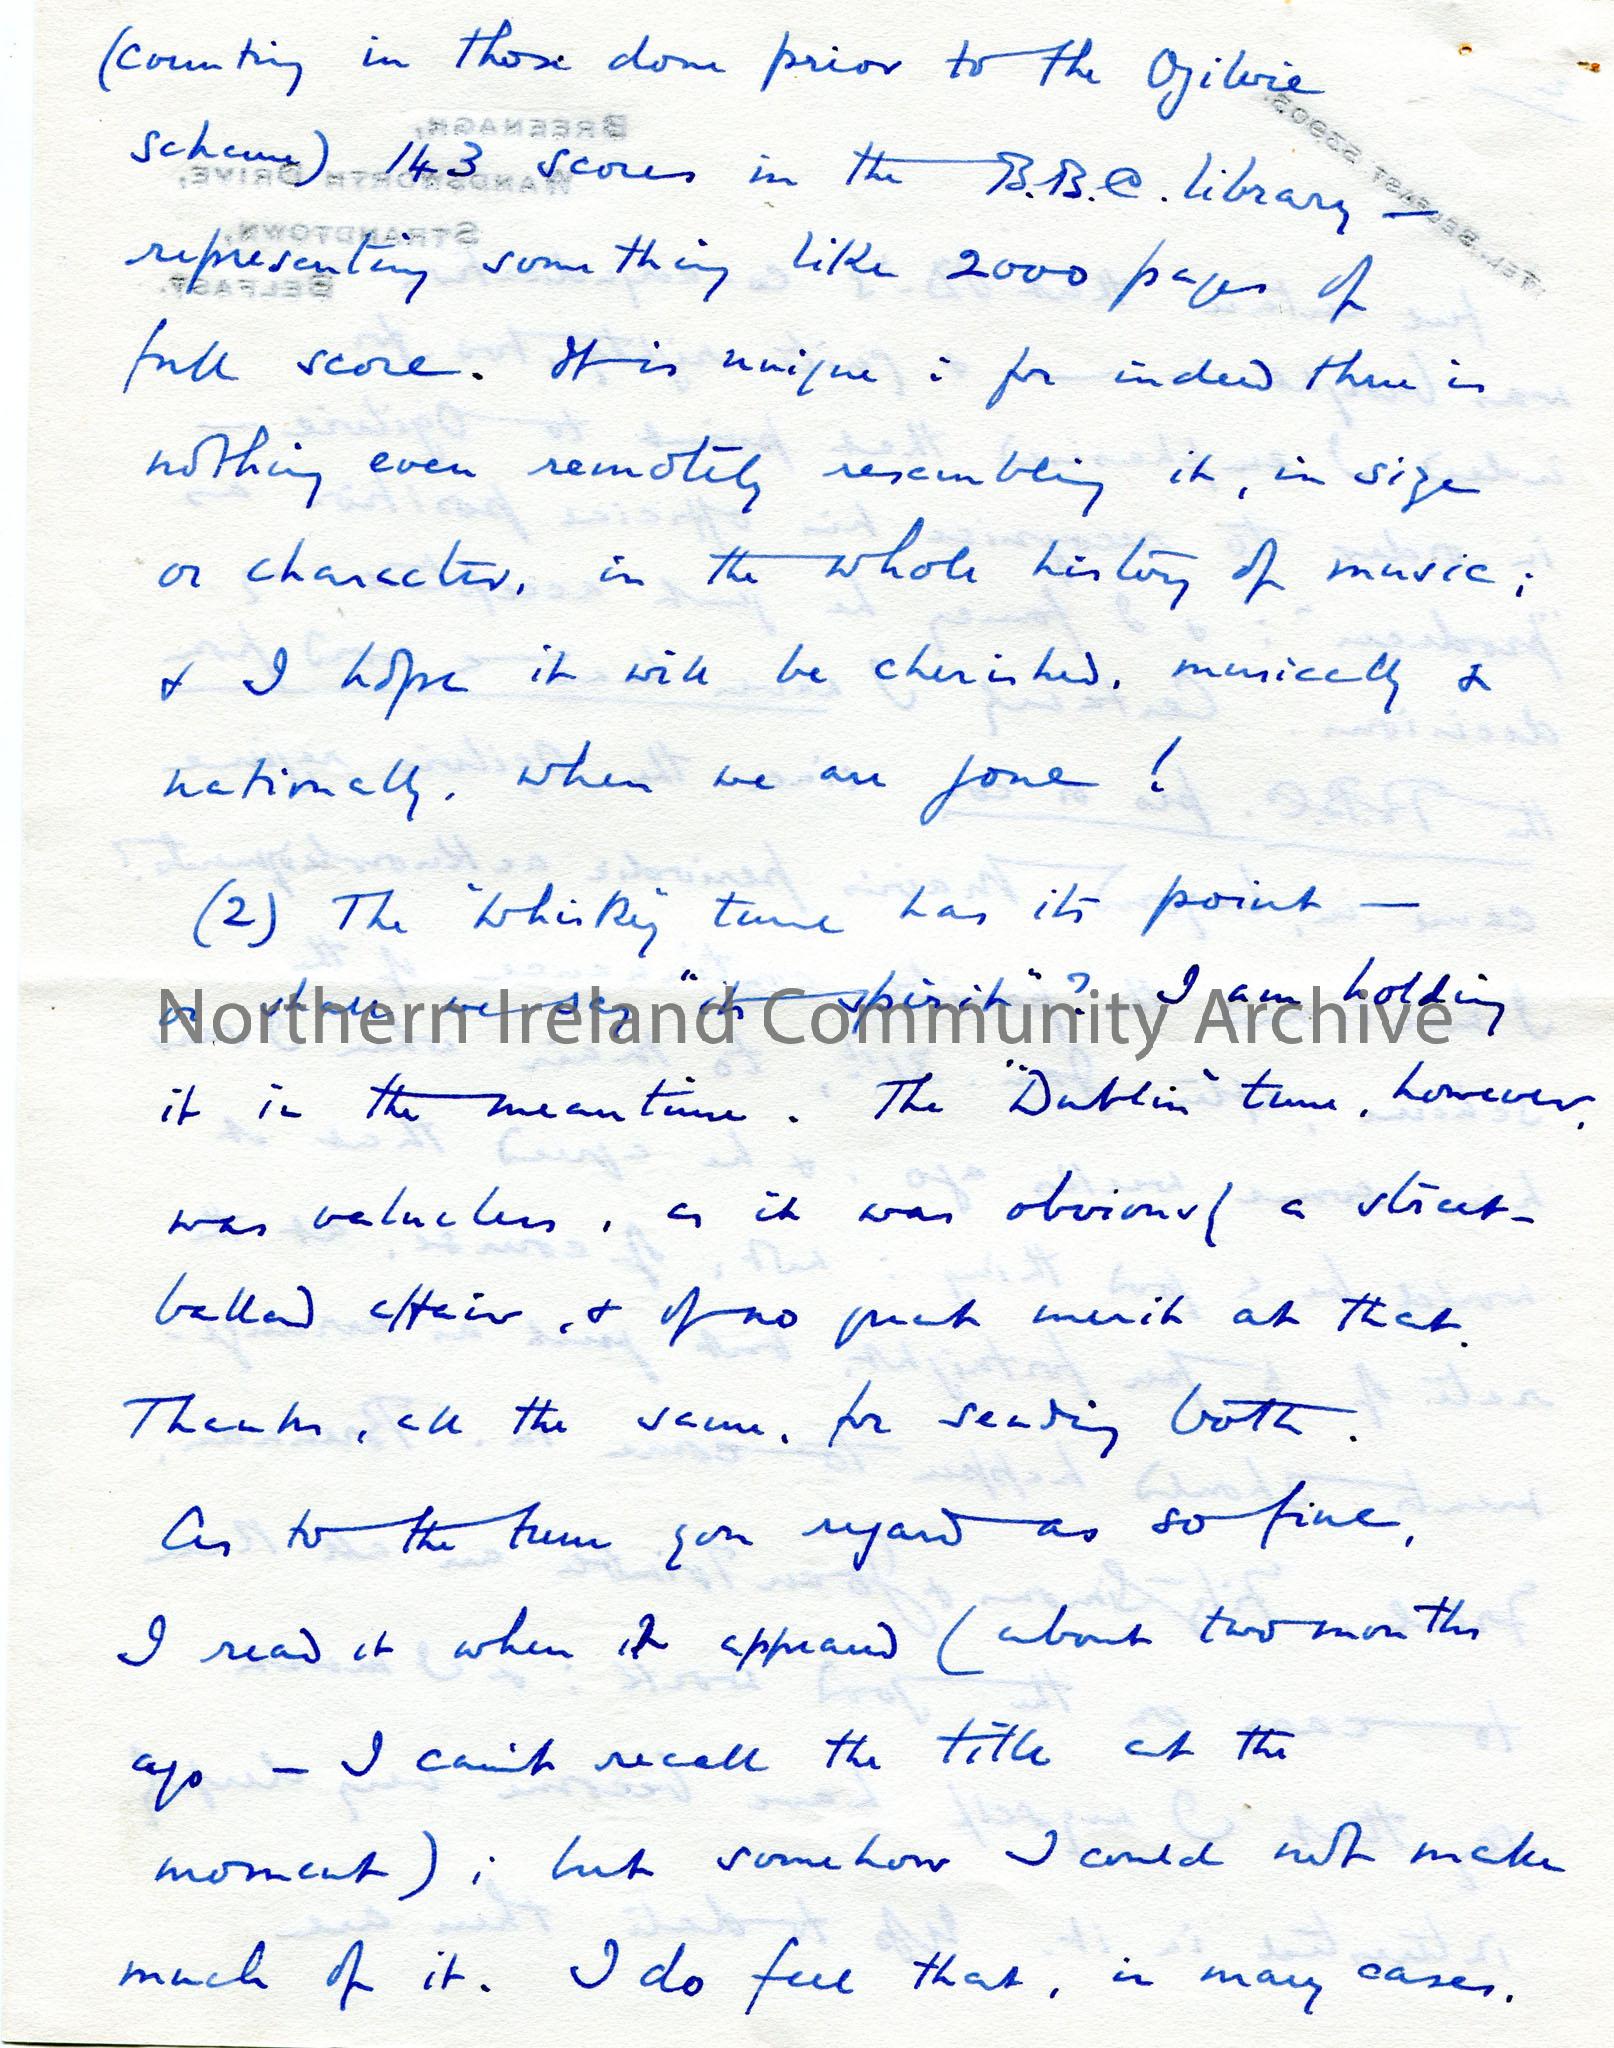 (counting in those done prior to the Ogilvie
scheme) 143 scores in the B.B.C. library —
representing something like 2000 pages of
full score. It is unique : for indeed there is
nothing even remotely resembling it, in size
or character, in the whole history of music ;
& I hope it will be cherished, musically &
nationally, when we are gone !
(2) The "Whiskey" tune has its point —
or shall we say "its spirit" ? I am holding
it in the meantime. The "Dublin" tune, however,
was valueless, as it was obviously a street-
ballad affair, & of no great merit at that.
Thanks, all the same, for sending both.
As to the tune you regard as so fine,
I read it when it appeared (about two months
ago — I can't recall the title at the
moment) ; but somehow I could not make
much of it. I do feel that, in many cases,
BREENAGH,
WANDSWORTH DRIVE,
STRANDTOWN,
BELFAST.
TEL. BELFAST 53905.
Northern Ireland Community Archive